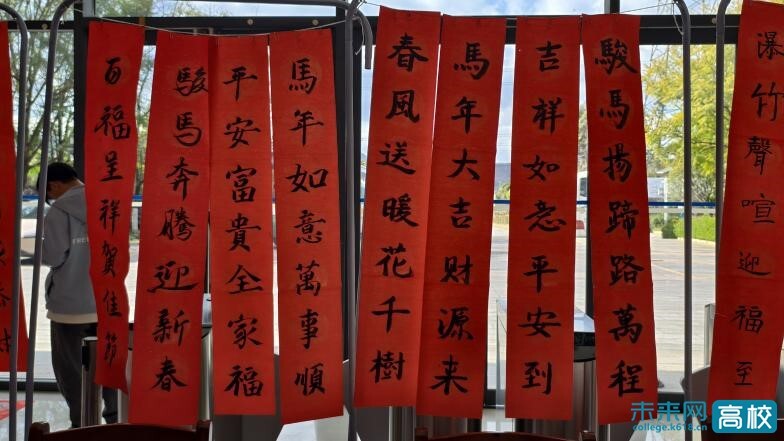 爆竹聲喧迎福至
駿馬揚蹄路萬程
吉祥如意平安到
馬年大吉財源來
春風送暖花千樹
馬年如意萬事順
平安富貴全家福
駿馬奔騰迎新春
百福呈祥賀佳節
未来网 高校
college.k618.cn